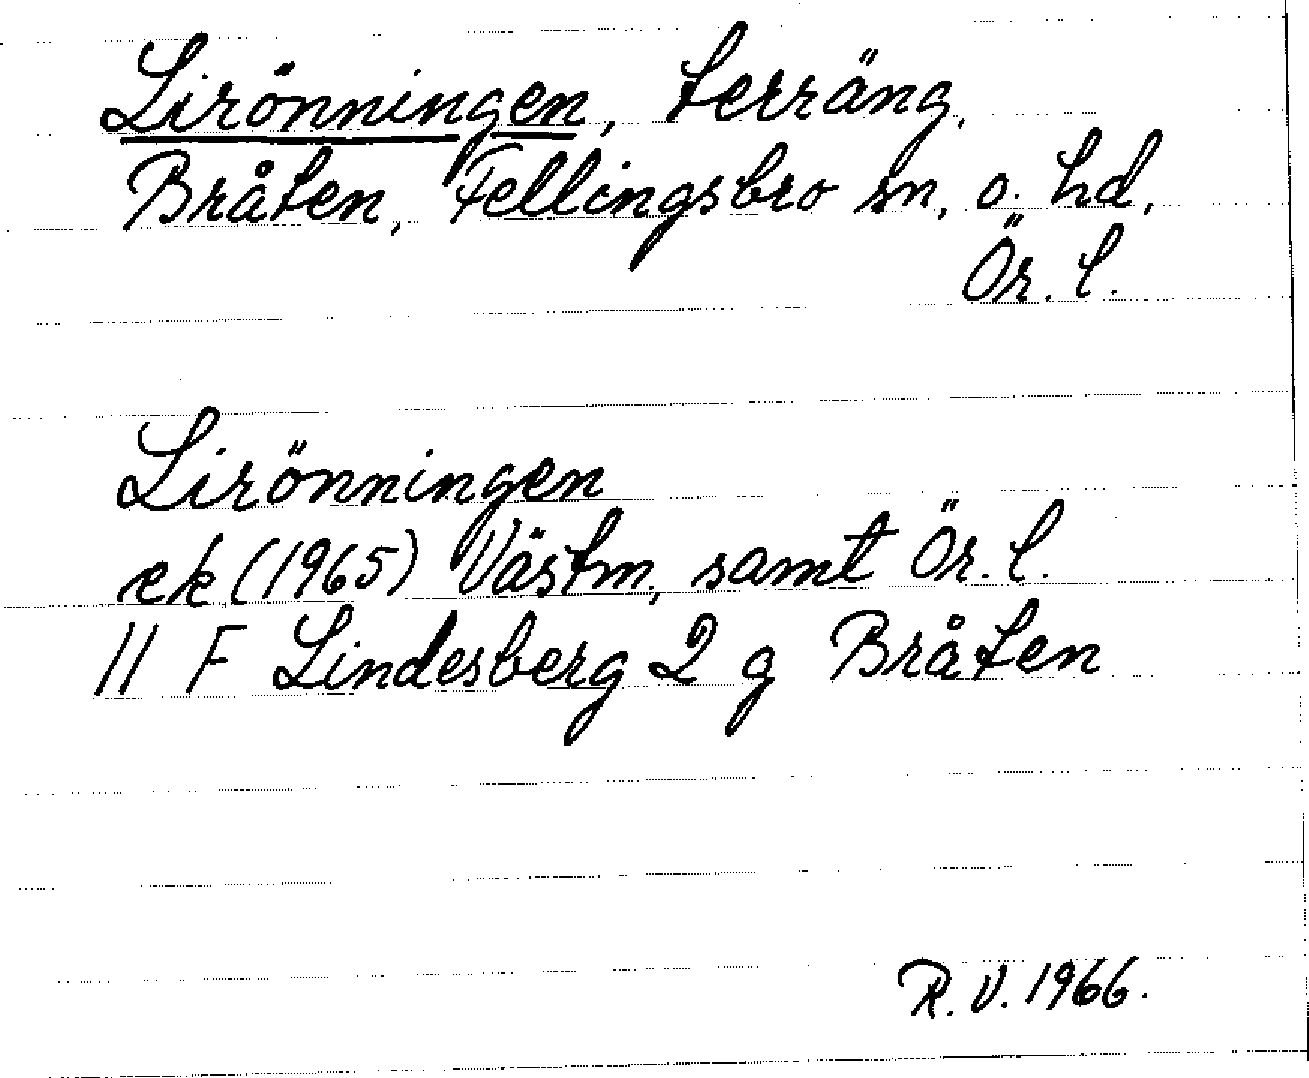 Lirönningen, terräng,
Bråten, Fellingsbro sn, o. hd,
Ör. l.
Lirönningen
ek (1965) Västm, samt Ör. l.
11 F Lindesberg 2 g Bråten
R. V. 1966.